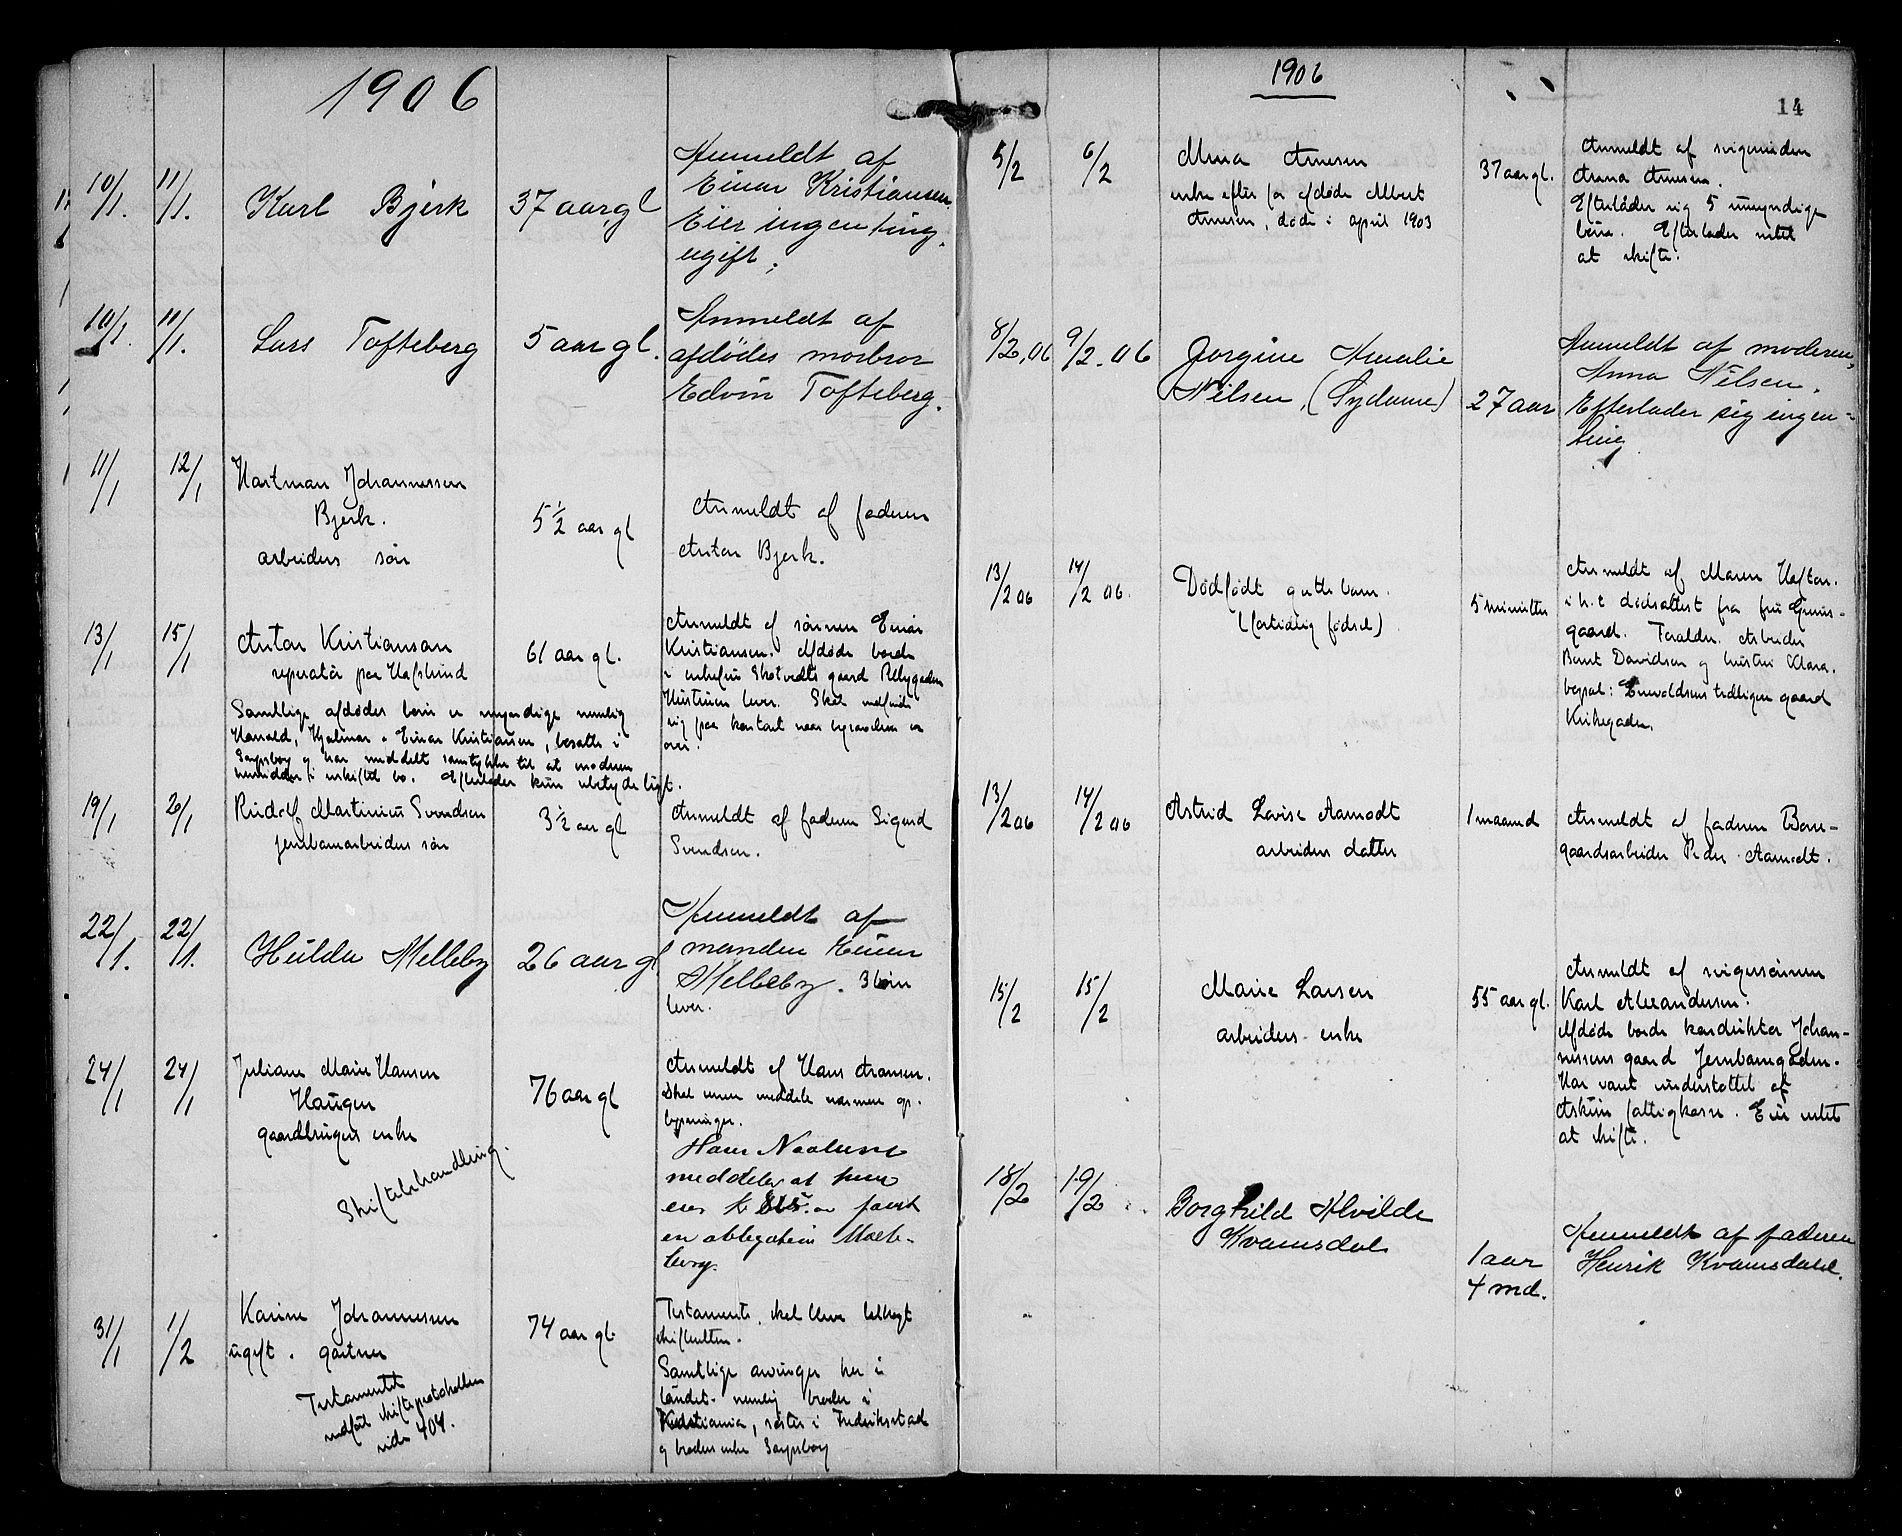 1906
10/1. 11/1. Karl Bjerk 37 aar gl
Anmeldt af
Einar Kristiansen.
Eier ingenting.
ugift.
10/1. 11/1. Lars Tofteberg 5 aar gl.
Anmeldt af
afdödes morbror
Edvin Tofteberg.
11/1 12/1 Hartman Johannessen
Bjerk.
arbeiders sön
5 1/2 aar gl
Anmeldt af faderen
Anton Bjerk.
13/1 15/1 Anton Kristiansen
reparatör paa Hafslund
61 aar gl.
Samtlige afdödes börn er myndige nemlig
Harald, Hjalmar, Einar Kristiansen, bosatte i
Sarpsborg og har meddelt samtykke til at moderen
hensidder i uskiftet bo. Efterlader kun ubetydeligt.
Anmeldt af sönnen Einar
Kristiansen. Afdöde boede
i enkefru Skotvedts gaard
Hustruen lever. Skal indfinde
sig paa kontoret naar begravelsen er
over.
19/1 20/1 Rudolf Martinius Svendsen
jernbanearbeiders sön
3 1/2 aar gl
Anmeldt af faderen Sigurd
Svendsen.
22/1. 22/1. Hulda Melleby 26 aar gl
Anmeldt af
manden Einar
Melleby. 3 börn
lever.
24/1 24/1 Juliane Marie Hansen
Haugen
gaardbrugers enke
Skiftebehandling.
76 aar gl
Anmeldt af Hans Aransen.
Skal senere meddele nærmere op-
lysninger.
Hans
meddeler at hun
eier kr. en pant
en obligation
berg.
31/1 1/2 Karine Johannesen
ugift. gartner
Testamentet
indfört skifteprotokollen
side 404.
74 aar gl.
Testamente, skal blive
skifteretten.
Samtlige arvinger her i
landet. nemlig broder i
Kristiania, söster i Fredriksstad
og broders enke Sarpsborg
1906
14
5/2 6/2 Mina Arnesen
enke efter for afdöde Albert
Arnesen, döde i april 1903
37 aar gl.
Anmeldt af svigerinden
Anna Arnesen.
Efterlader sig 5 umyndige
börn. Efterlader intet
at skifte.
8/2.06 9/2.06 Jorgine Amalie
Nilsen, (Sydame)
27 aar
Anmeldt af moderen,
Anna Nilsen.
Efterlader sig ingen-
ting
13/2 06 14/2 06. Dödfödt guttebarn.
(fortidlig födsel)
5 minutter
Anmeldt af Maren Hafton.
i h.t. dödsattest fra fru
gaard. Foreldre. Arbeider
Bernt Davidsen og hustru Klara.
bopæl: Enevoldsens tidligere gaard
Kirkegaden.
13/2 06 14/2 06 Astrid Lovise Aamodt
arbeiders datter
1 maaned
Anmeldt af faderen Borre-
gaardsarbeider Peder Aamodt.
15/2 15/2 Marie Larsen
arbeiders enke
55 aar gl.
Anmeldt af svigersönnen
Karl Alexandersen.
Afdöde boede konduktör Johan-
nessens gaard Jernbanegaden.
Har været understöttet af
Askim fattigkasse. Eier intet
at skifte.
18/2 19/2 Borghild Alvilde
Kvamsdal
1 aar
4 md.
Anmeldt af faderen
Henrik Kvamsdahl.